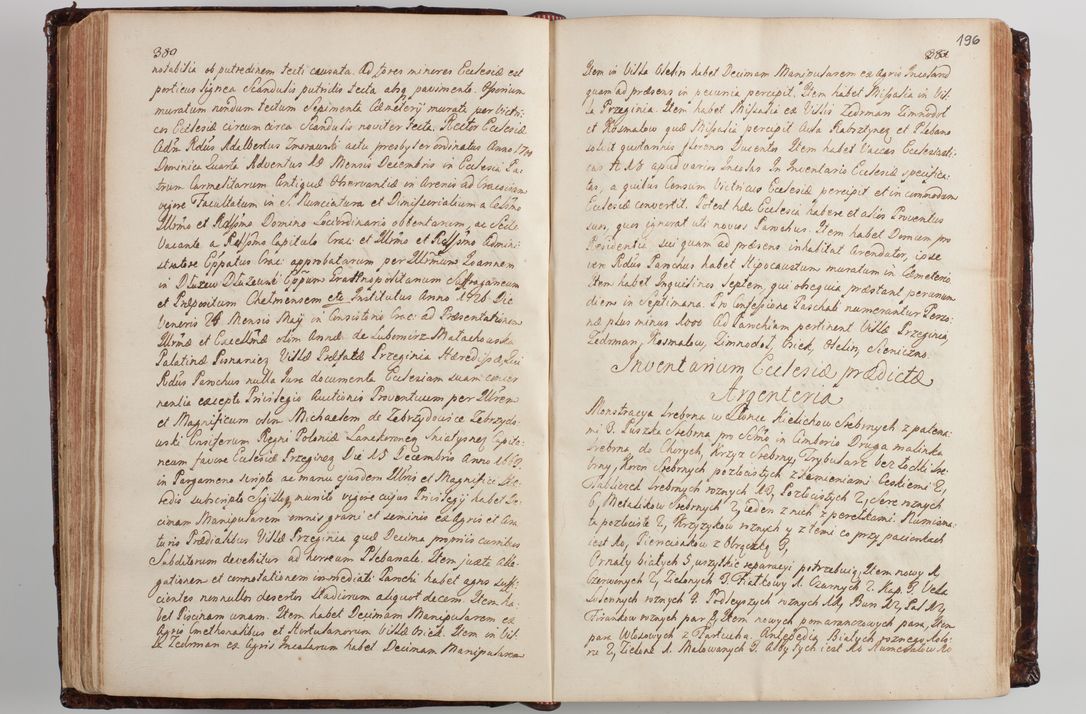 380
notabilia ob putredinem tecti causata. Ad fores minores Ecclesiæ est
porticus lignea Scandulis putridis tecta absq pavimento. Ossorium
muratum nondum tectum Sepimenta Cæmeterij murata per Victri-
cos Ecclesiæ circum circa Scandulis noviter tecta. Rector Ecclesiæ
Adm Rdus Adalbertus actu presbyter ordinatus Anno 17
Dominica Quarta Adventus 19 Mensis Decembris in Ecclesia Pa-
trum Carmelitarum Antiquæ Observantiæ in Arenis ad Cracoviam
vigore Facultatum in S. Nunciatura et Dimissorialium a Celsmo
Illmo et Rssmo Domino Loci Ordinario obtentarum, ac Sede
Vacante a Rssmo Capitulo Crac: et Illmo et Rssmo Admini-
stratore Eppatus Crac: approbatarum per Illmum Joannem
in Dłużew Dłużewski Eppum Suffraganeum
et Præpositum Chelmensem etc Institutus Anno 1726 Die
Veneris 24 Mensis Maij in Consistorio Crac: ad Præsentationem
Illmæ et Excellmæ olim Annæ de Lubomirz Małachowska
Palatinæ Posnanieñ Villæ Præfatæ Przeginia Hæredissæ, Qui
Rdus Parochus nulla Jura documenta Ecclesiam suam concer-
nentia excepto Privilegio Auctionis Proventuum per Illrem
et Magnificum olim Michaelem de Zebrzydowice Zebrzydo-
wski Ensiferum Regni Poloniæ Lanckoroneñ Sniatyneñ Capita-
neum favore Ecclesiæ Przegineñ Die 15 Decembris Anno
in Pargameno scripto, ac manu ejusdem Illris et Magnifici
subscripto Sigilloq munito vigore cujus Privilegij habet De-
cimam Manipularem omnis grani et seminis ex Agris et
Prædialibus Villæ Przeginia quæ Decima proprijs curribus
Subditorum devehitur ad horreum Plebanale. Item juxta Alle-
gationem et connotationem immediati Parochi habet agros suffi-
cientes nonnullos desertos Stadiorum aliquot decem. Item ha-
bet Piscinam unam. Item habet Decimam Manipularem ex
Agris Cmethonalibus et Hortulanorum Villæ Item in Vil-
la Zedrman ex Agris Incolarum habet Decimam Manipularem
196
Item in Villa Oselin habet Decimam Manipularem ex Agris Incolarũ
quam ad præsens in pecunia percipit. Item habet Missalia in Vil-
la Przeginia. Item habet Missalia ex Villis Zedrman Zimnodoł
et Kosmalow quæ Missalia percipit Arda Rabsztyneñ et Plebano
solvit quotannis florenos Ducentos. Item habet Vaccas Ecclesiasti-
cas apud varios Incolas In Inventario Ecclesiæ specifica-
tas, a quibus Censum Victricus Ecclesiæ percipit et in commodum
Ecclesiæ convertit. Potest hæc Ecclesia habere et alios Proventus
suos, quos ignorat uti novus Parochus. Item habet Domum pro
Residentia sui quam ad præsens inhabitat Arendator, ipse
vero Rdus Parochus habet Hipocaustum muratum in Cæmeterio
Item habet Inquilinos Septem, qui obsequia præstant per unum
diem in Septimana. Pro Confessione Paschali numerantur Perso-
næ plus minus 1000 Ad Parochiam pertinent Villæ Przeginia,
Zedrman, Kosmalow, Zimnodoł, Osiek, Oselin, Sieniczno.
Inventarium Ecclesiæ prædictæ
Argenteria
Monstracya Srebrna w Kielichow Srebrnych z patena-
mi 3. Puszka Srebrna pro Scmo in Cimborio Druga malinka
Srebrna do Chorych, Krzyż Srebrny, Trybularz bez Łodki Sre-
brny, Koron Srebrnych pozłocistych z kamieniami Czeskiemi 2,
Tabliczek Srebrnych roznych Pozłocistych 2, Serc roznych
6, Metalikow Srebrnych 2, ieden z nich z perełkami. Numisma-
ta pozłociste 2, Krzyzykow roznych y z temi co przy paciorkach
iest Pierscionkow z Obrączką 9,
Ornaty białych 5 wszytkie reparacyi potrzebuią, Item nowy 1.
Czerwonych 2, Zielonych 3. Fiałkowy 1. Czarnych 2. Kap. 3. Vela
Sukiennych roznych 9. Podleyszych roznych Burs
Firankow roznych par Item nowych pomaranczowych para, Item
para Włosowych z Fartucha. Antepedia Białych roznego Kolo-
ru 2, Zielone 1. Malowanych 3. Alby tych iest Humerałow